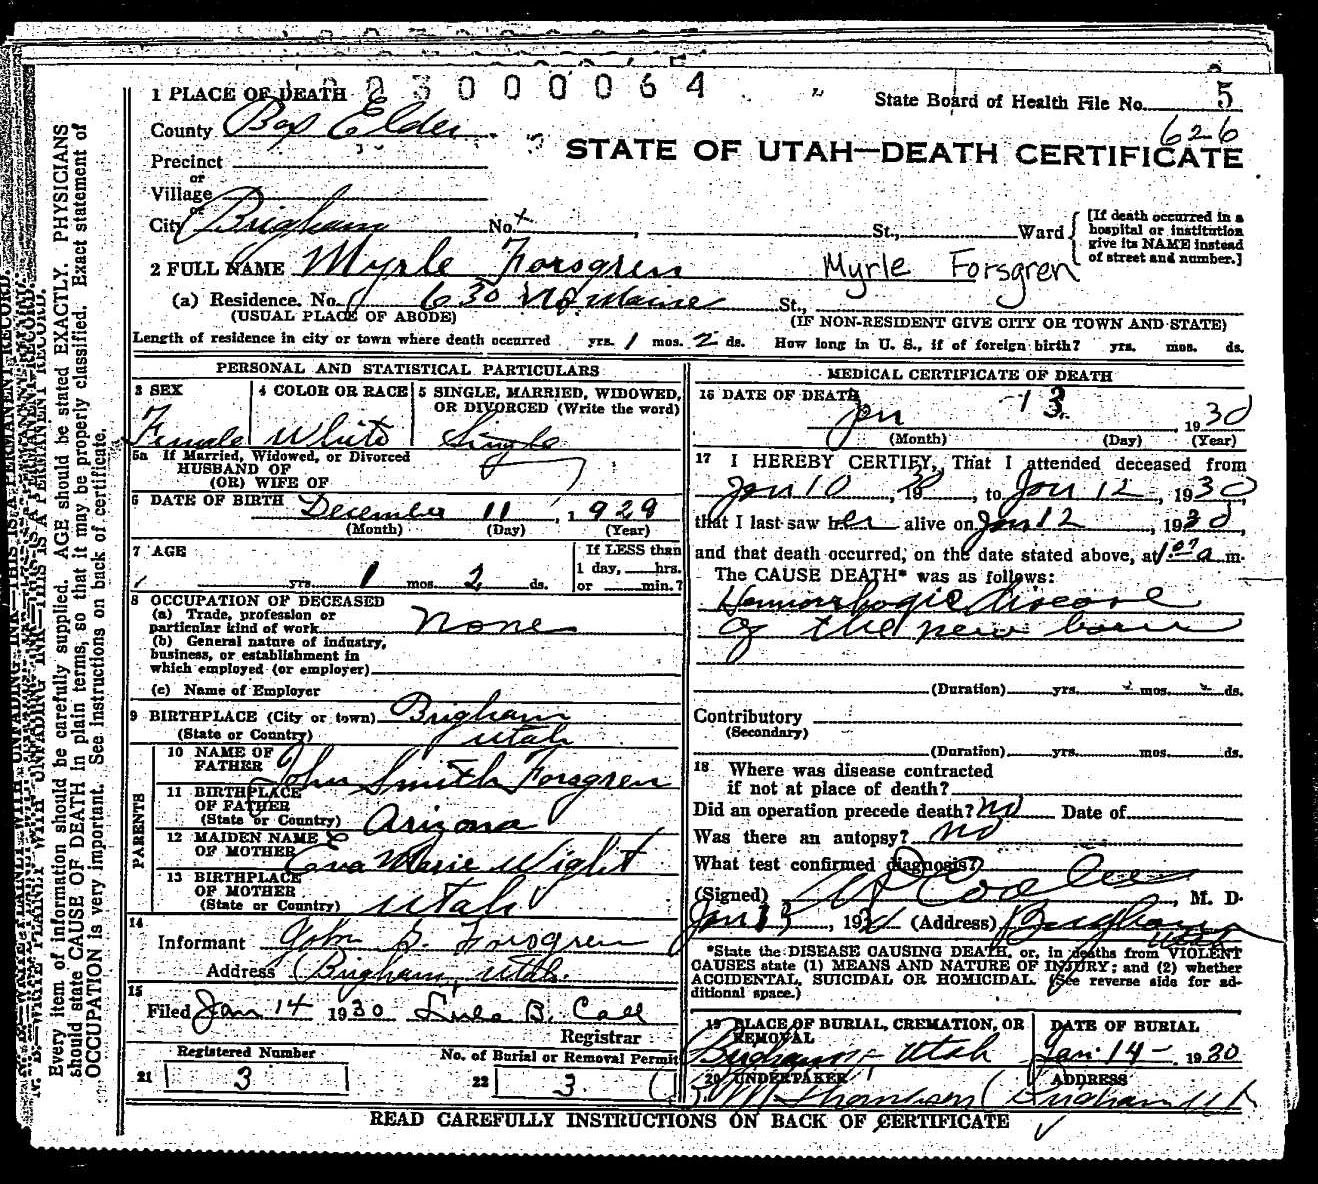 30000064
1 PLACE OF DEATH
State Board of Health File No. 5
626
County Box Elder
STATE OF UTAH—DEATH CERTIFICATE
Precinct
or
Village
or
City Brigham No. St., Ward
[If death occurred in a hospital or institution give its NAME instead of street and number.]
2 FULL NAME Myrle Forsgren Myrle Forsgren
(a) Residence. No. 630 No Main St.,
(USUAL PLACE OF ABODE) (IF NON-RESIDENT GIVE CITY OR TOWN AND STATE)
Length of residence in city or town where death occurred yrs. 1 mos. 2 ds. How long in U. S., if of foreign birth? yrs. mos. ds.
PERSONAL AND STATISTICAL PARTICULARS
3 SEX 4 COLOR OR RACE 5 SINGLE, MARRIED, WIDOWED, OR DIVORCED (Write the word)
Female White Single
5a If Married, Widowed, or Divorced
HUSBAND OF
(OR) WIFE OF
6 DATE OF BIRTH December 11, 1929
(Month) (Day) (Year)
7 AGE If LESS than
yrs. 1 mos. 2 ds. 1 day, hrs.
or min.?
8 OCCUPATION OF DECEASED
(a) Trade, profession or
particular kind of work None
(b) General nature of industry,
business, or establishment in
which employed (or employer)
(c) Name of Employer
9 BIRTHPLACE (City or town) Brigham
(State or Country) Utah
PARENTS
10 NAME OF
FATHER John Smith Forsgren
11 BIRTHPLACE
OF FATHER
(State or Country) Arizona
12 MAIDEN NAME
OF MOTHER Eva Marie Wight
13 BIRTHPLACE
OF MOTHER
(State or Country) Utah
14
Informant John S. Forsgren
Address Brigham, Utah.
15
Filed Jan 14 1930 Lula B. Call
Registrar
Registered Number No. of Burial or Removal Permit
21 3 22 3
MEDICAL CERTIFICATE OF DEATH
16 DATE OF DEATH
Jan 13, 1930
(Month) (Day) (Year)
17 I HEREBY CERTIFY, That I attended deceased from
Jan 10, 1930, to Jan 12, 1930
that I last saw her alive on Jan 12, 1930,
and that death occurred, on the date stated above, at a m.
The CAUSE DEATH* was as follows:
Hemorrhagic disease
of the new born
(Duration) yrs. mos. ds.
Contributory
(Secondary)
(Duration) yrs. mos. ds.
18 Where was disease contracted
if not at place of death?
Did an operation precede death? No Date of
Was there an autopsy? No
What test confirmed diagnosis?
(Signed) , M. D.
Jan 13, 1930 (Address) Brigham
Utah
*State the DISEASE CAUSING DEATH, or, in deaths from VIOLENT
CAUSES state (1) MEANS AND NATURE OF INJURY; and (2) whether
ACCIDENTAL, SUICIDAL OR HOMICIDAL. (See reverse side for ad-
ditional space.)
19 PLACE OF BURIAL, CREMATION, OR REMOVAL DATE OF BURIAL
Brigham, Utah Jan. 14 1930
20 UNDERTAKER ADDRESS
Brigham Ut
READ CAREFULLY INSTRUCTIONS ON BACK OF CERTIFICATE
Every item of information should be carefully supplied. AGE should be stated EXACTLY. PHYSICIANS
should state CAUSE OF DEATH in plain terms, so that it may be properly classified. Exact statement of
OCCUPATION is very important. See instructions on back of certificate.